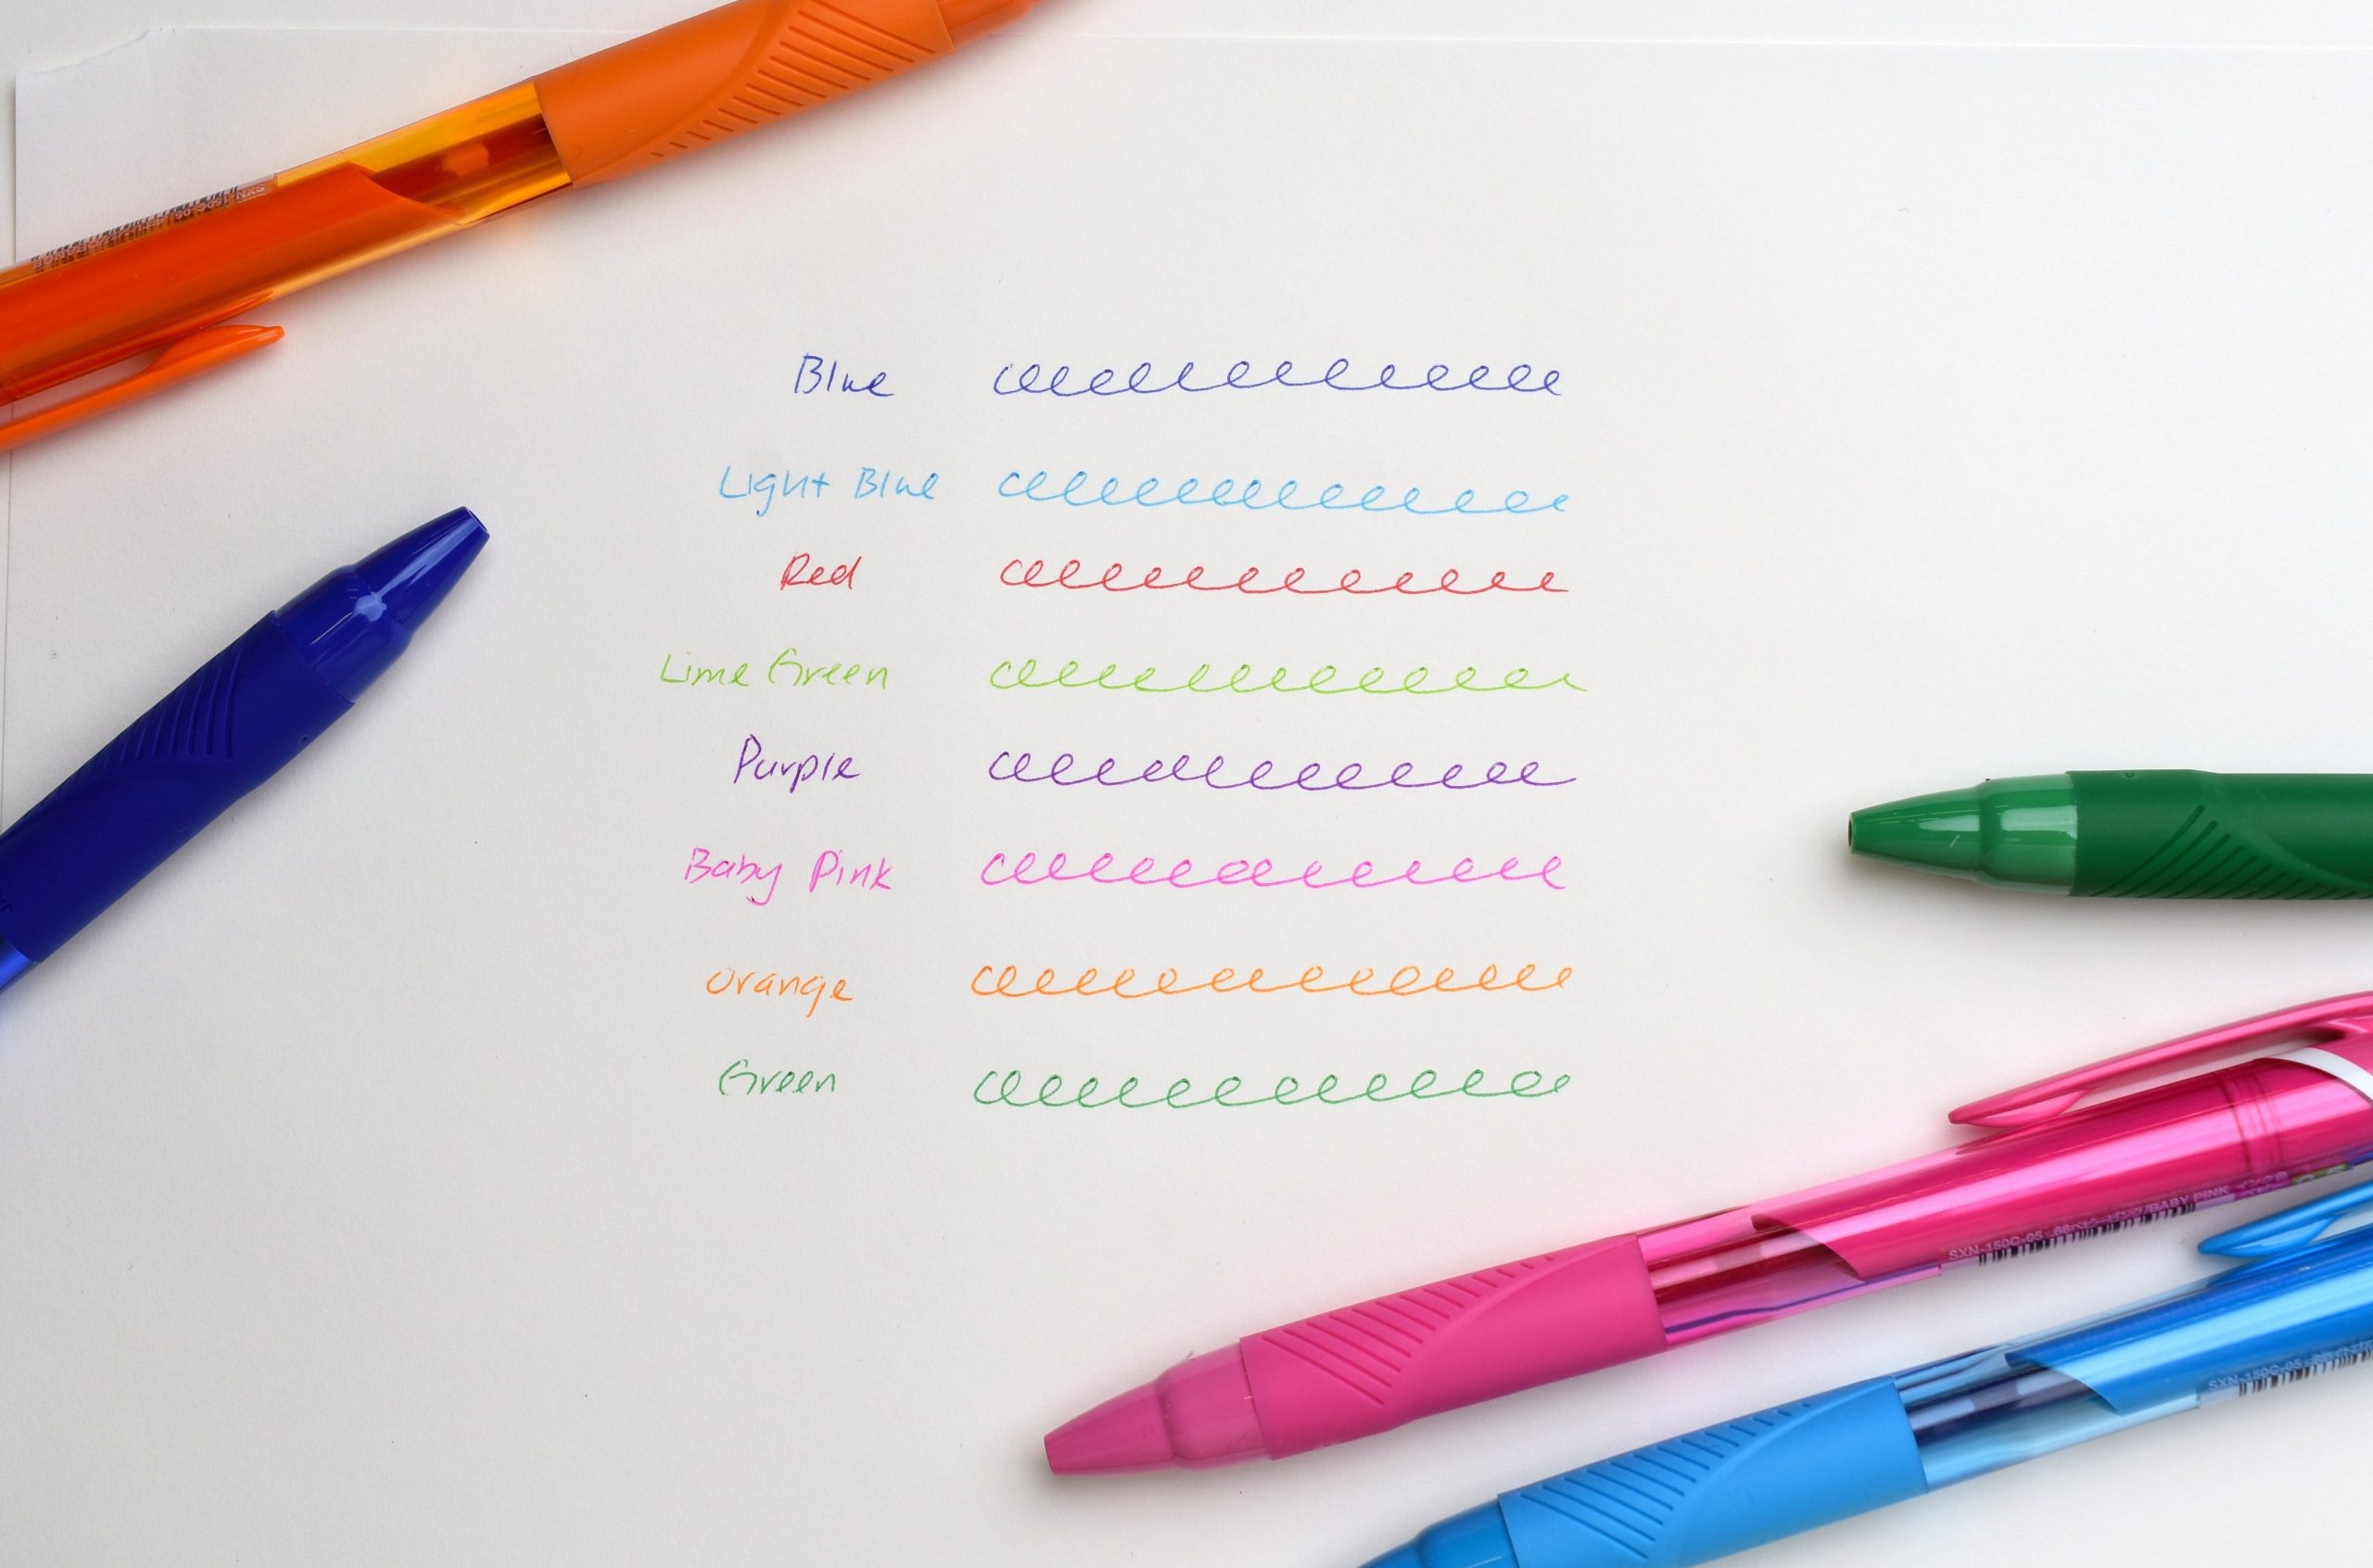 Blue
Light Blue
Red
Lime Green
Purple
Baby Pink
Orange
Green
SXN-150C-05
BABY PINK
SXN-150C-05